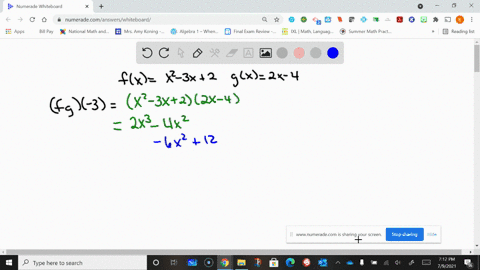 Numerade Whiteboard
numerade.com/answers/whiteboard/
Apps
Bill
National Math and...
Mrs. Amy Koning -...
Algebra 1 – When...
Final Exam Review -...
IXL | Math, Languag...
Summer Math Practi...
Reading List
f(x)= x²-3x+2 g(x)=2x-4
(fg)(-3) = (x²-3x+2)(2x-4)
= 2x³-4x²
-6x²+12
www.numerade.com is sharing your screen.
Stop sharing
Hide
Type here to search
7:12 PM
7/9/2021